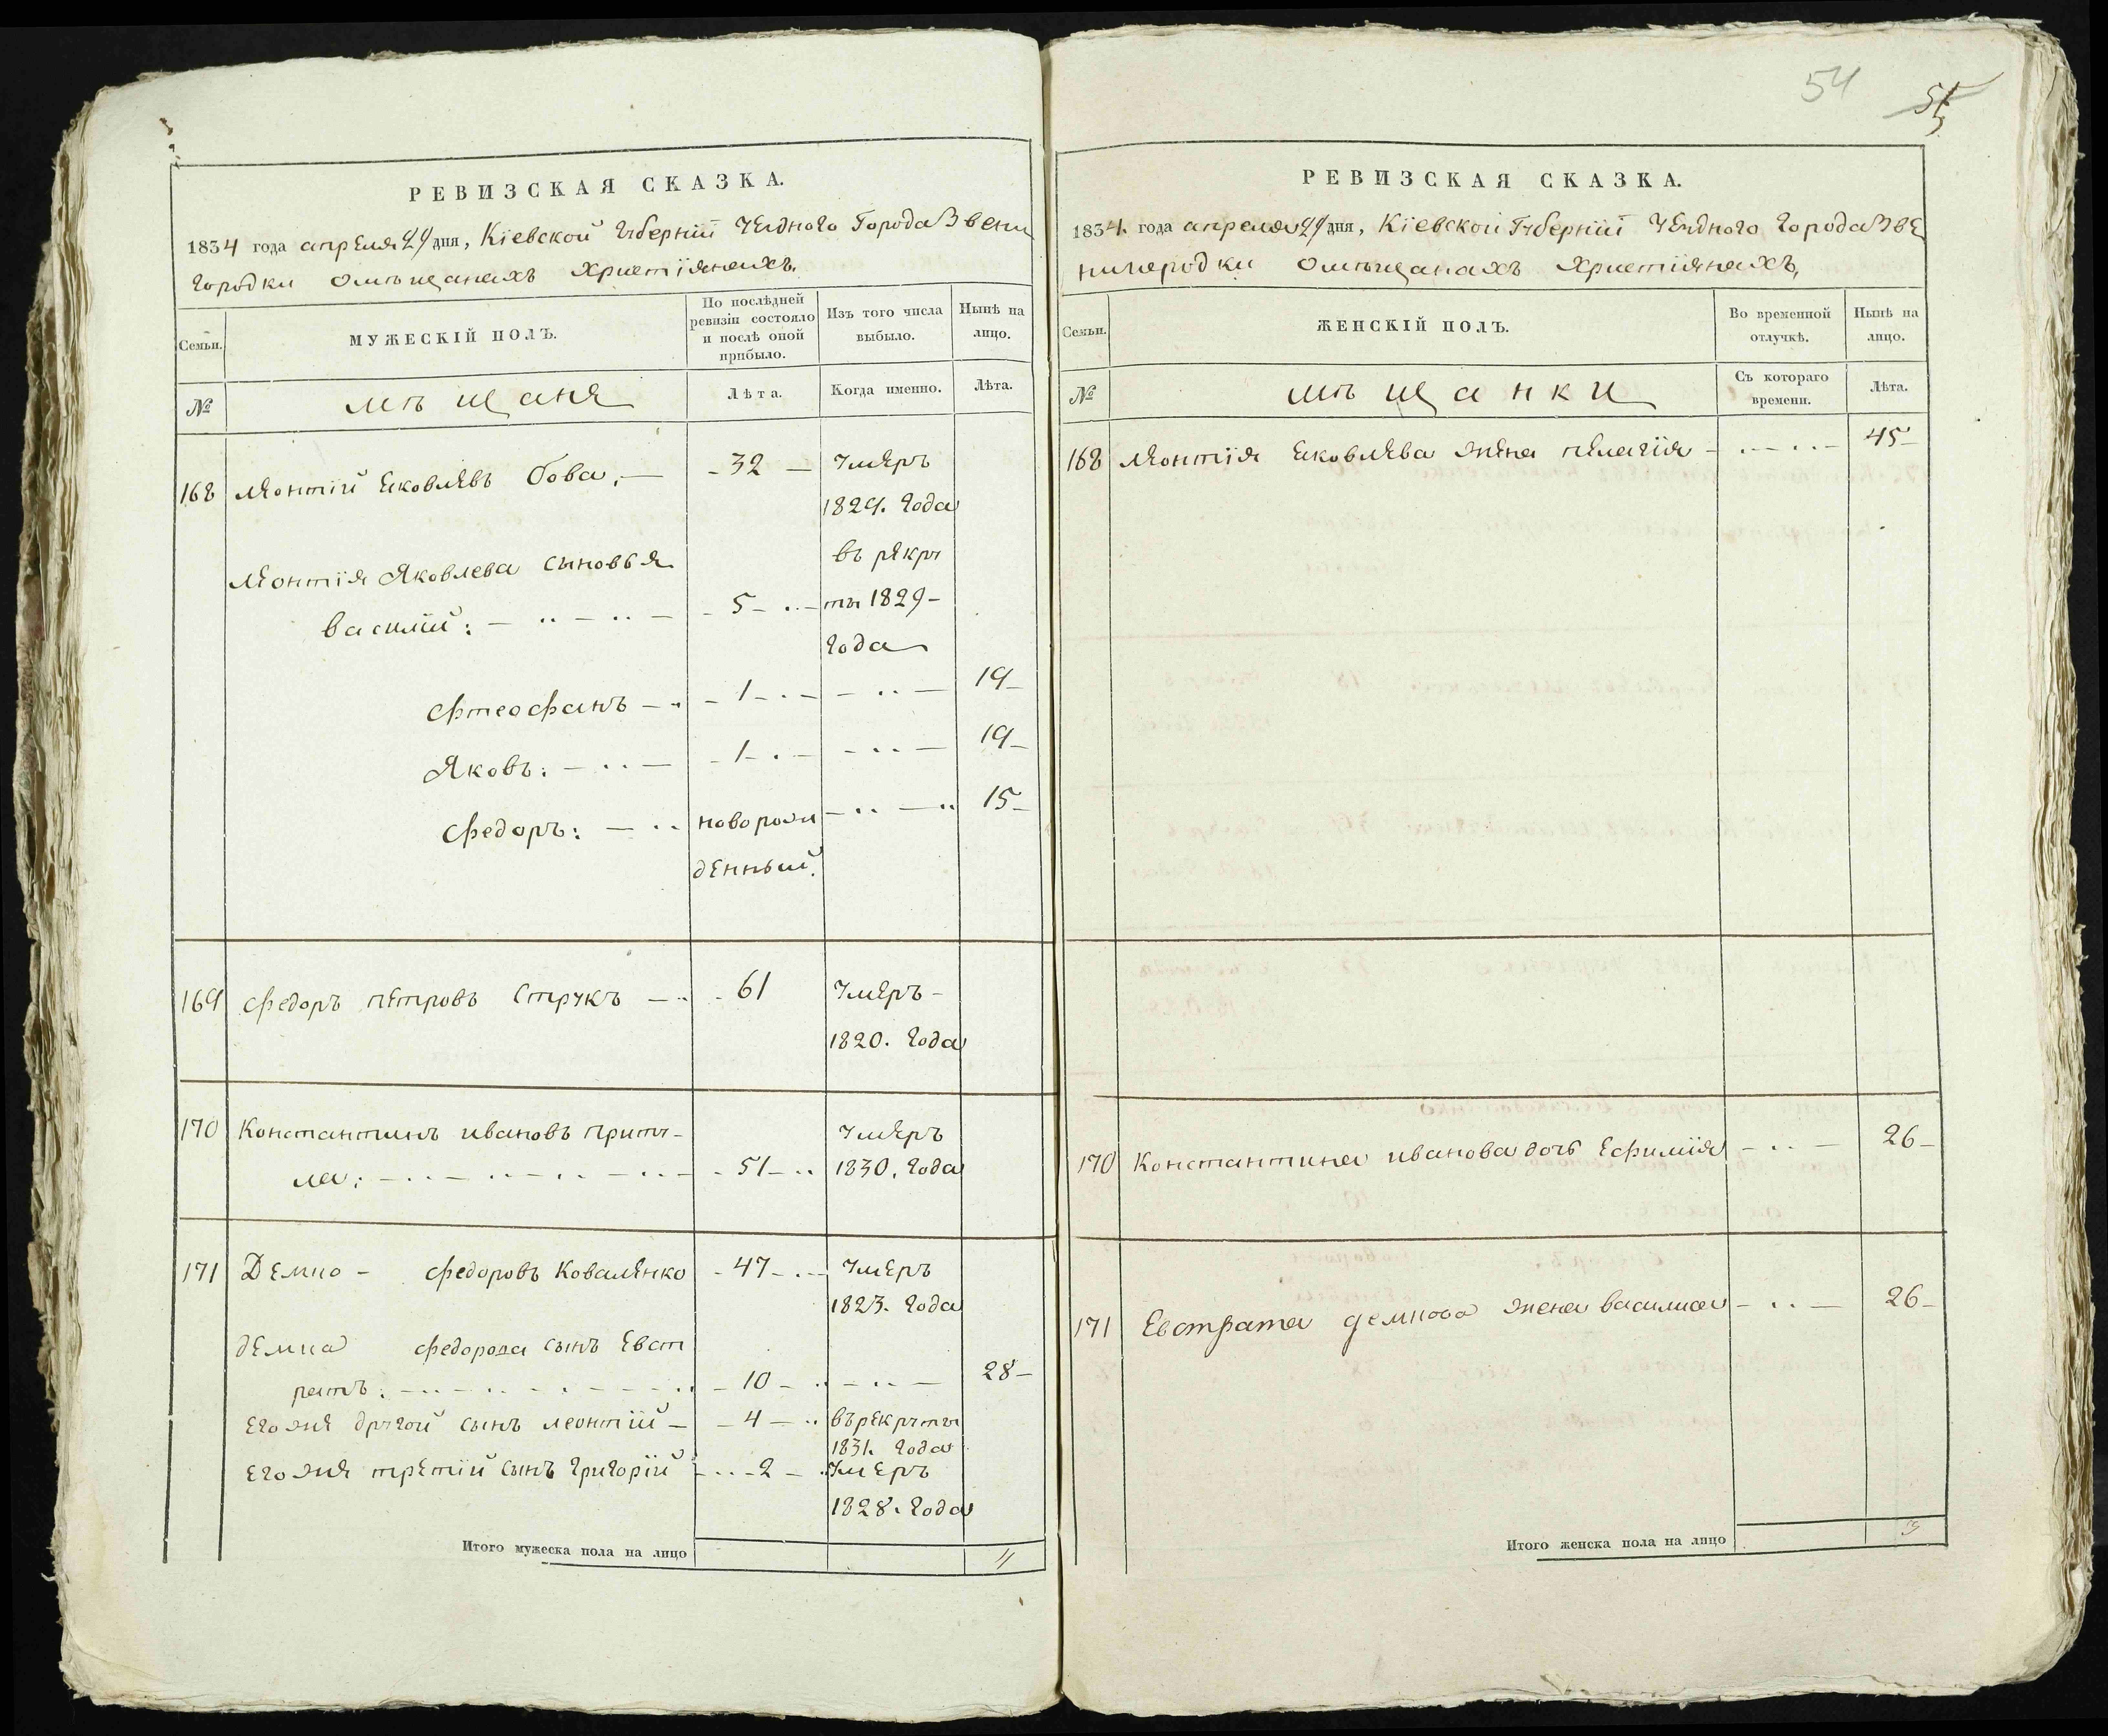 54
РЕВИЗСКАЯ СКАЗКА.
1834 года апреля 29 дня, Кіевской Губерніи Уезднаго Города Звени
городки омѣщанахъ Християнахъ.
Семьи.
МУЖЕСКІЙ ПОЛЪ.
По послѣдней
ревизіи состояло
и послѣ оной
прибыло.
Изъ того числа
выбыло.
Нынѣ на
лицо.
№
мѣщаня
Лѣта.
Когда именно.
Лѣта.
168 Леонтій Яковлевъ Бова. — 32 — умеръ
1829. года
Леонтія Яковлева сыновья
въ рекру
василій: 5 ты 1829
года
Фтеофанъ 1 19
Яковъ: 1 19
Федоръ: новорож 15
денный.
169 Федоръ петровъ Струкъ 61 умеръ
1820. года
170 Константинъ ивановъ приту- умеръ
ла: 51 1830. года
171 Демио Федоровъ Коваленко 47 умеръ
1823. года
демиа Федорова сынъ Евст
ратъ: 10 28
Его же другой сынъ леонтій 4 въ рекруты
1831. года
Его же третій сынъ григорій 2 умеръ
1828. года
Итого мужеска пола на лицо 4
РЕВИЗСКАЯ СКАЗКА.
1834. года апреля 29 дня, Кіевской Губерніи Уезднаго города Зве
нигородки омѣщанахъ Християнахъ,
Семьи.
ЖЕНСКІЙ ПОЛЪ.
Во временной
отлучкѣ.
Нынѣ на
лицо.
№
мѣщанки
Съ котораго
времени.
Лѣта.
168 Леонтія Яковлева жена пелагія 45
170 Константина иванова дочь Ефимія 26
171 Евстрата демиова жена василиса 26
Итого женска пола на лицо 3